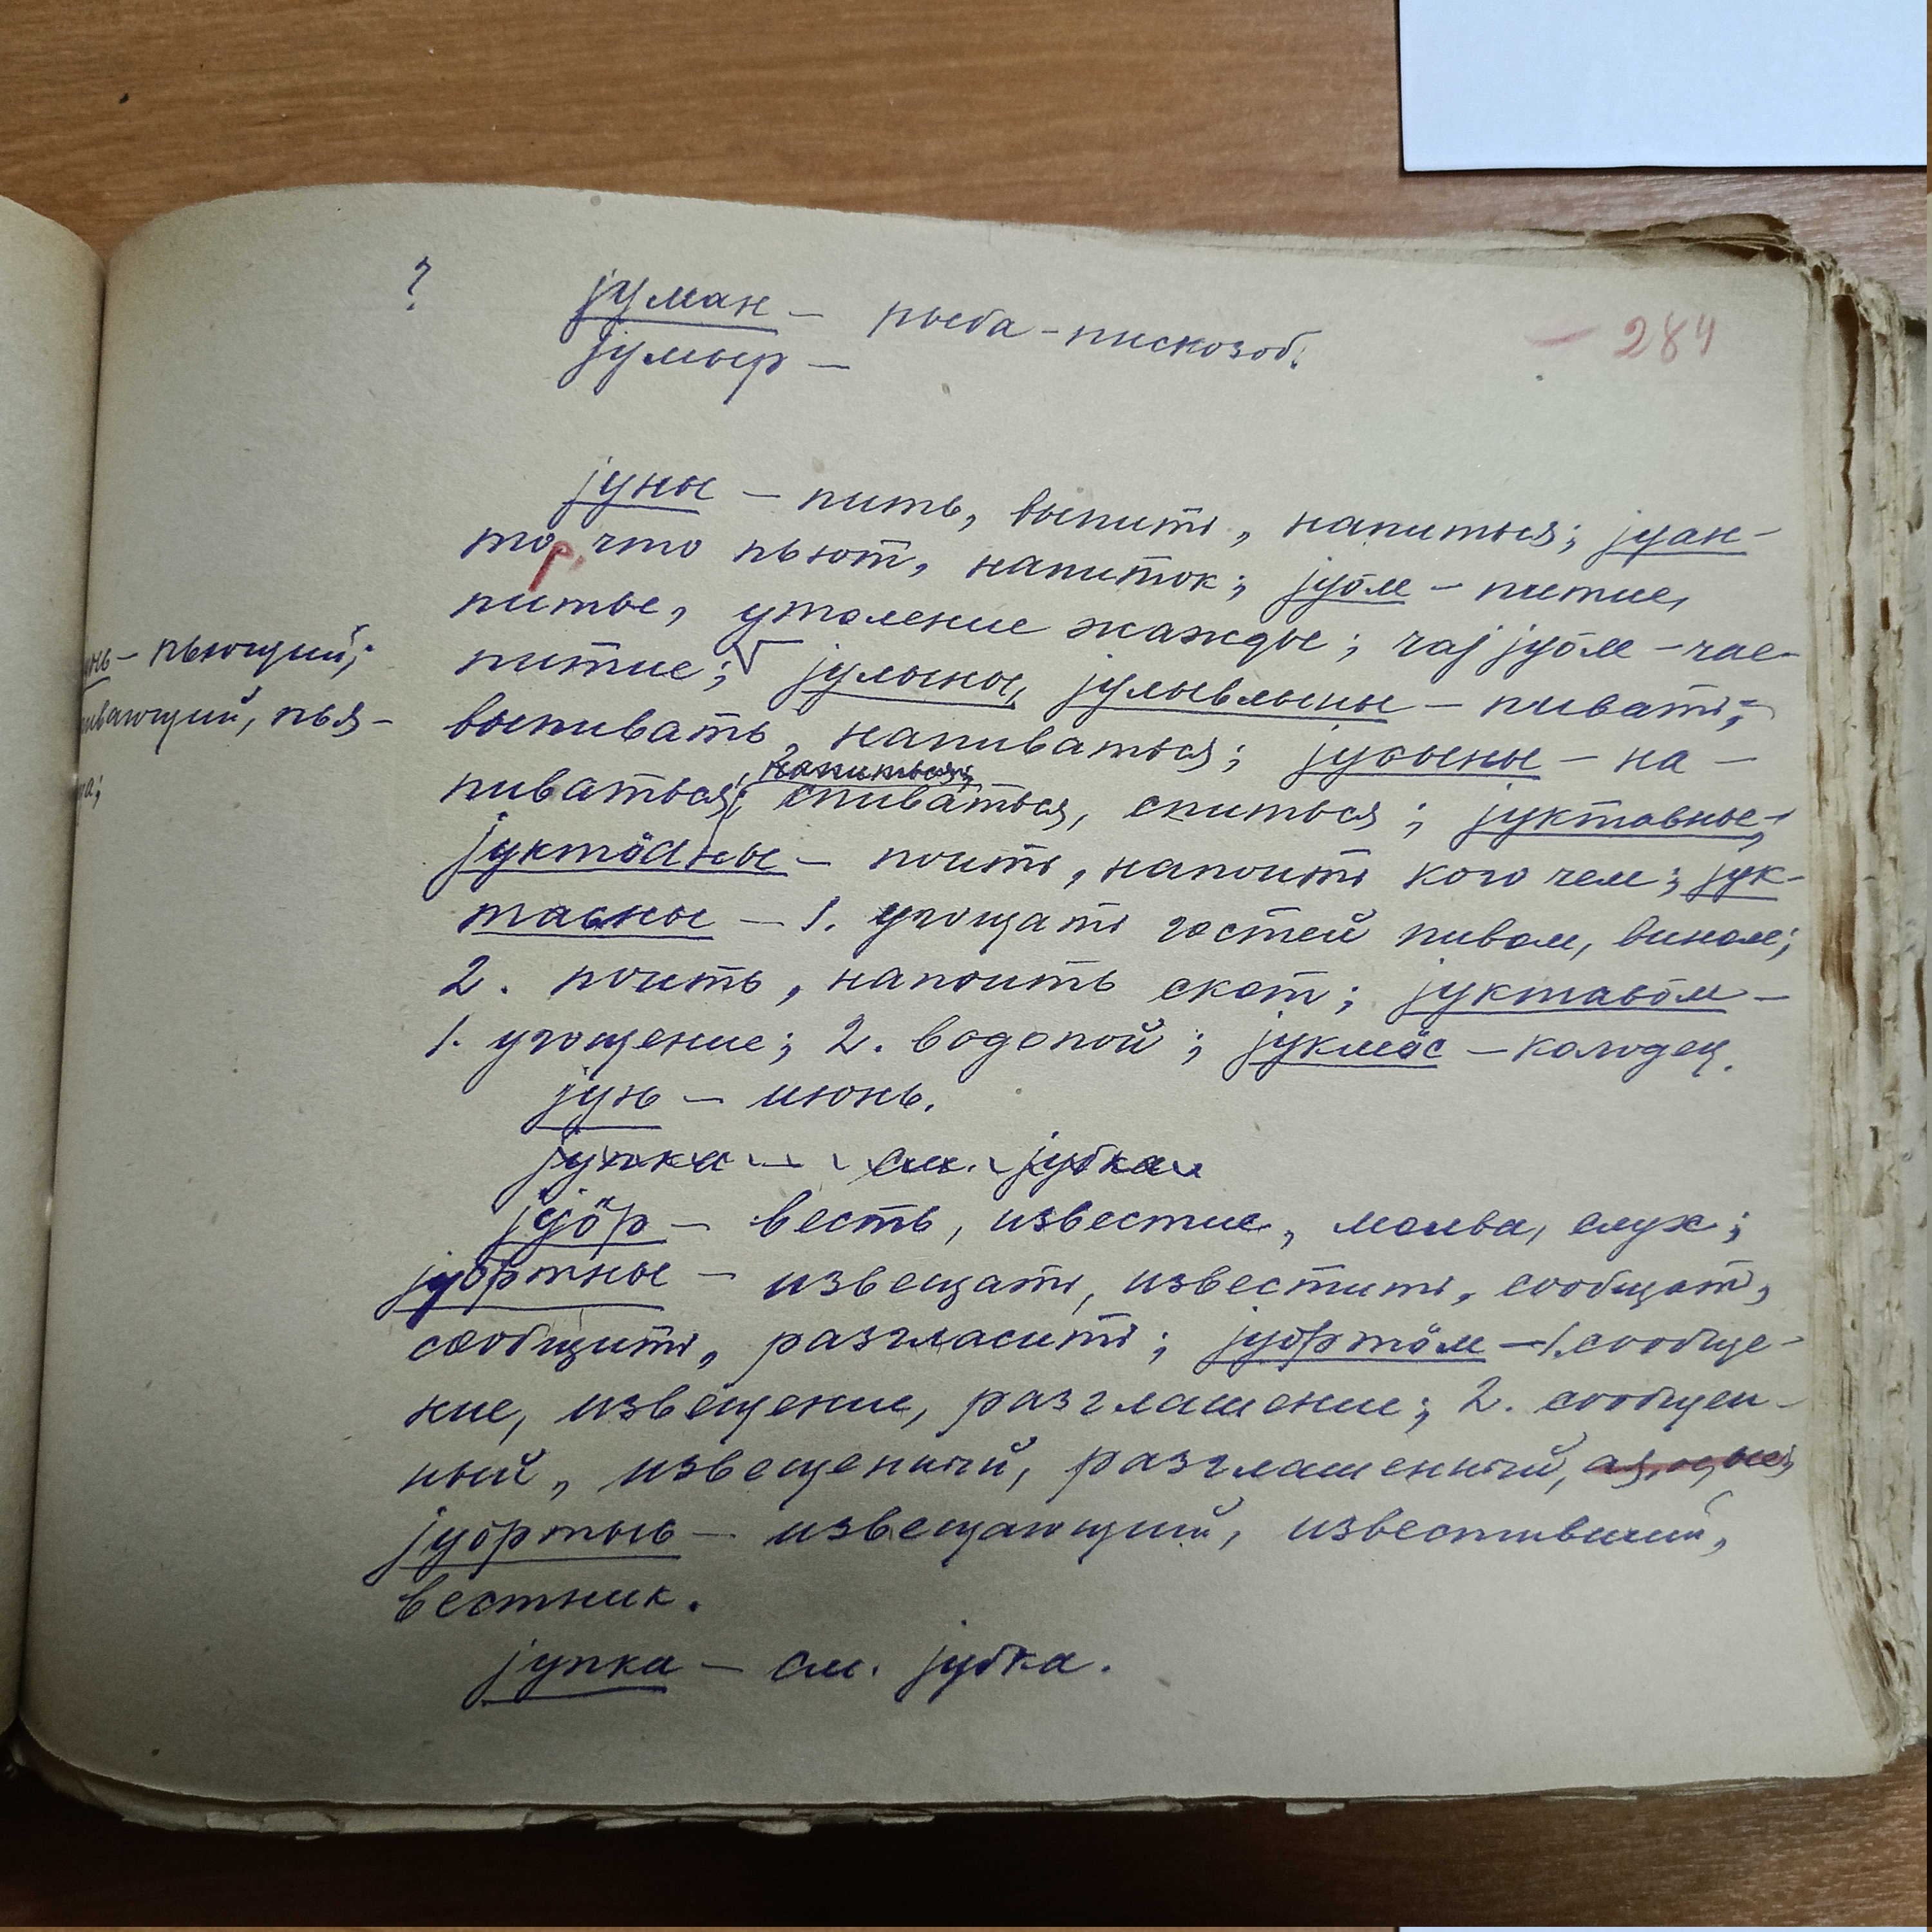 ? јуман — рыба-пискозоб.
јумыр —
— 284
јуны — пить, выпить, напиться; јуан-
то, что пьют, напиток; јуöм — питие,
питье, утоление жажды; чај јуöм — чае-
питие; јулыны, јулывлыны — пивать,
выпивать, напиваться; јусьыны — на-
пиваться; напиться; спиваться, спиться; јуктавны,
јуктöдны — поить, напоить кого чем; јук-
тавны — 1. угощать гостей пивом, вином;
2. поить, напоить скот; јуктавöм —
1. угощение; 2. водопой; јукмöс — колодец.
јунь — июнь.
јупка — см. јубка
јуöр — весть, известие, молва, слух;
јуöртны — извещать, известить, сообщать,
сообщить, разгласить; јуöртöм — 1. сообще-
ние, извещение, разглашение; 2. сообщен-
ный, извещенный, разглашенный,
јуöртысь — извещающий, известивший,
вестник.
јупка — см. јубка.
— пьющий;
пья-